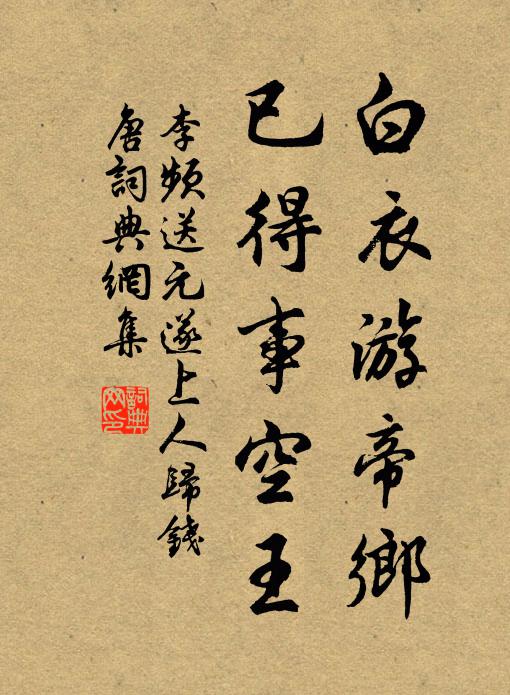 白衣游帝鄉
已得事空王
李頻送元遂上人歸錢
唐詞典網集
詞典
网印